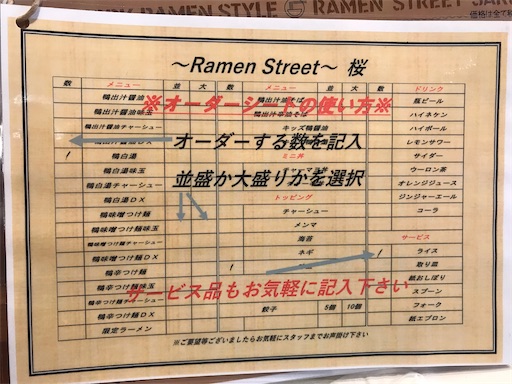 RAMEN STYLE RAMEN STREET
価格は全て税
～Ramen Street～ 桜
数 メニュー 並 大 数 メニュー 並 大 数 ドリンク
※オーダーシートの使い方※
オーダーする数を記入
並盛か大盛りかを選択
サービス品もお気軽に記入下さい
鴨出汁醤油
鴨出汁醤油味玉
鴨出汁醤油チャーシュー
鴨出汁醤油DX
鴨白湯
鴨白湯味玉
鴨白湯チャーシュー
鴨白湯DX
鴨味噌つけ麺
鴨味噌つけ麺味玉
鴨味噌つけ麺チャーシュー
鴨味噌つけ麺DX
鴨辛つけ麺
鴨辛つけ麺味玉
鴨辛つけ麺チャーシュー
鴨辛つけ麺DX
限定ラーメン
鴨出汁油そば
鴨出汁辛油そば
キッズ鴨醤油
ミニ丼
トッピング
チャーシュー
メンマ
海苔
ネギ
餃子 5個 10個
瓶ビール
ハイネケン
ハイボール
レモンサワー
サイダー
ウーロン茶
オレンジジュース
ジンジャーエール
コーラ
サービス
ライス
取り皿
紙おしぼり
スプーン
フォーク
紙エプロン
※ご要望等ございましたらお気軽にスタッフまでお声掛け下さい